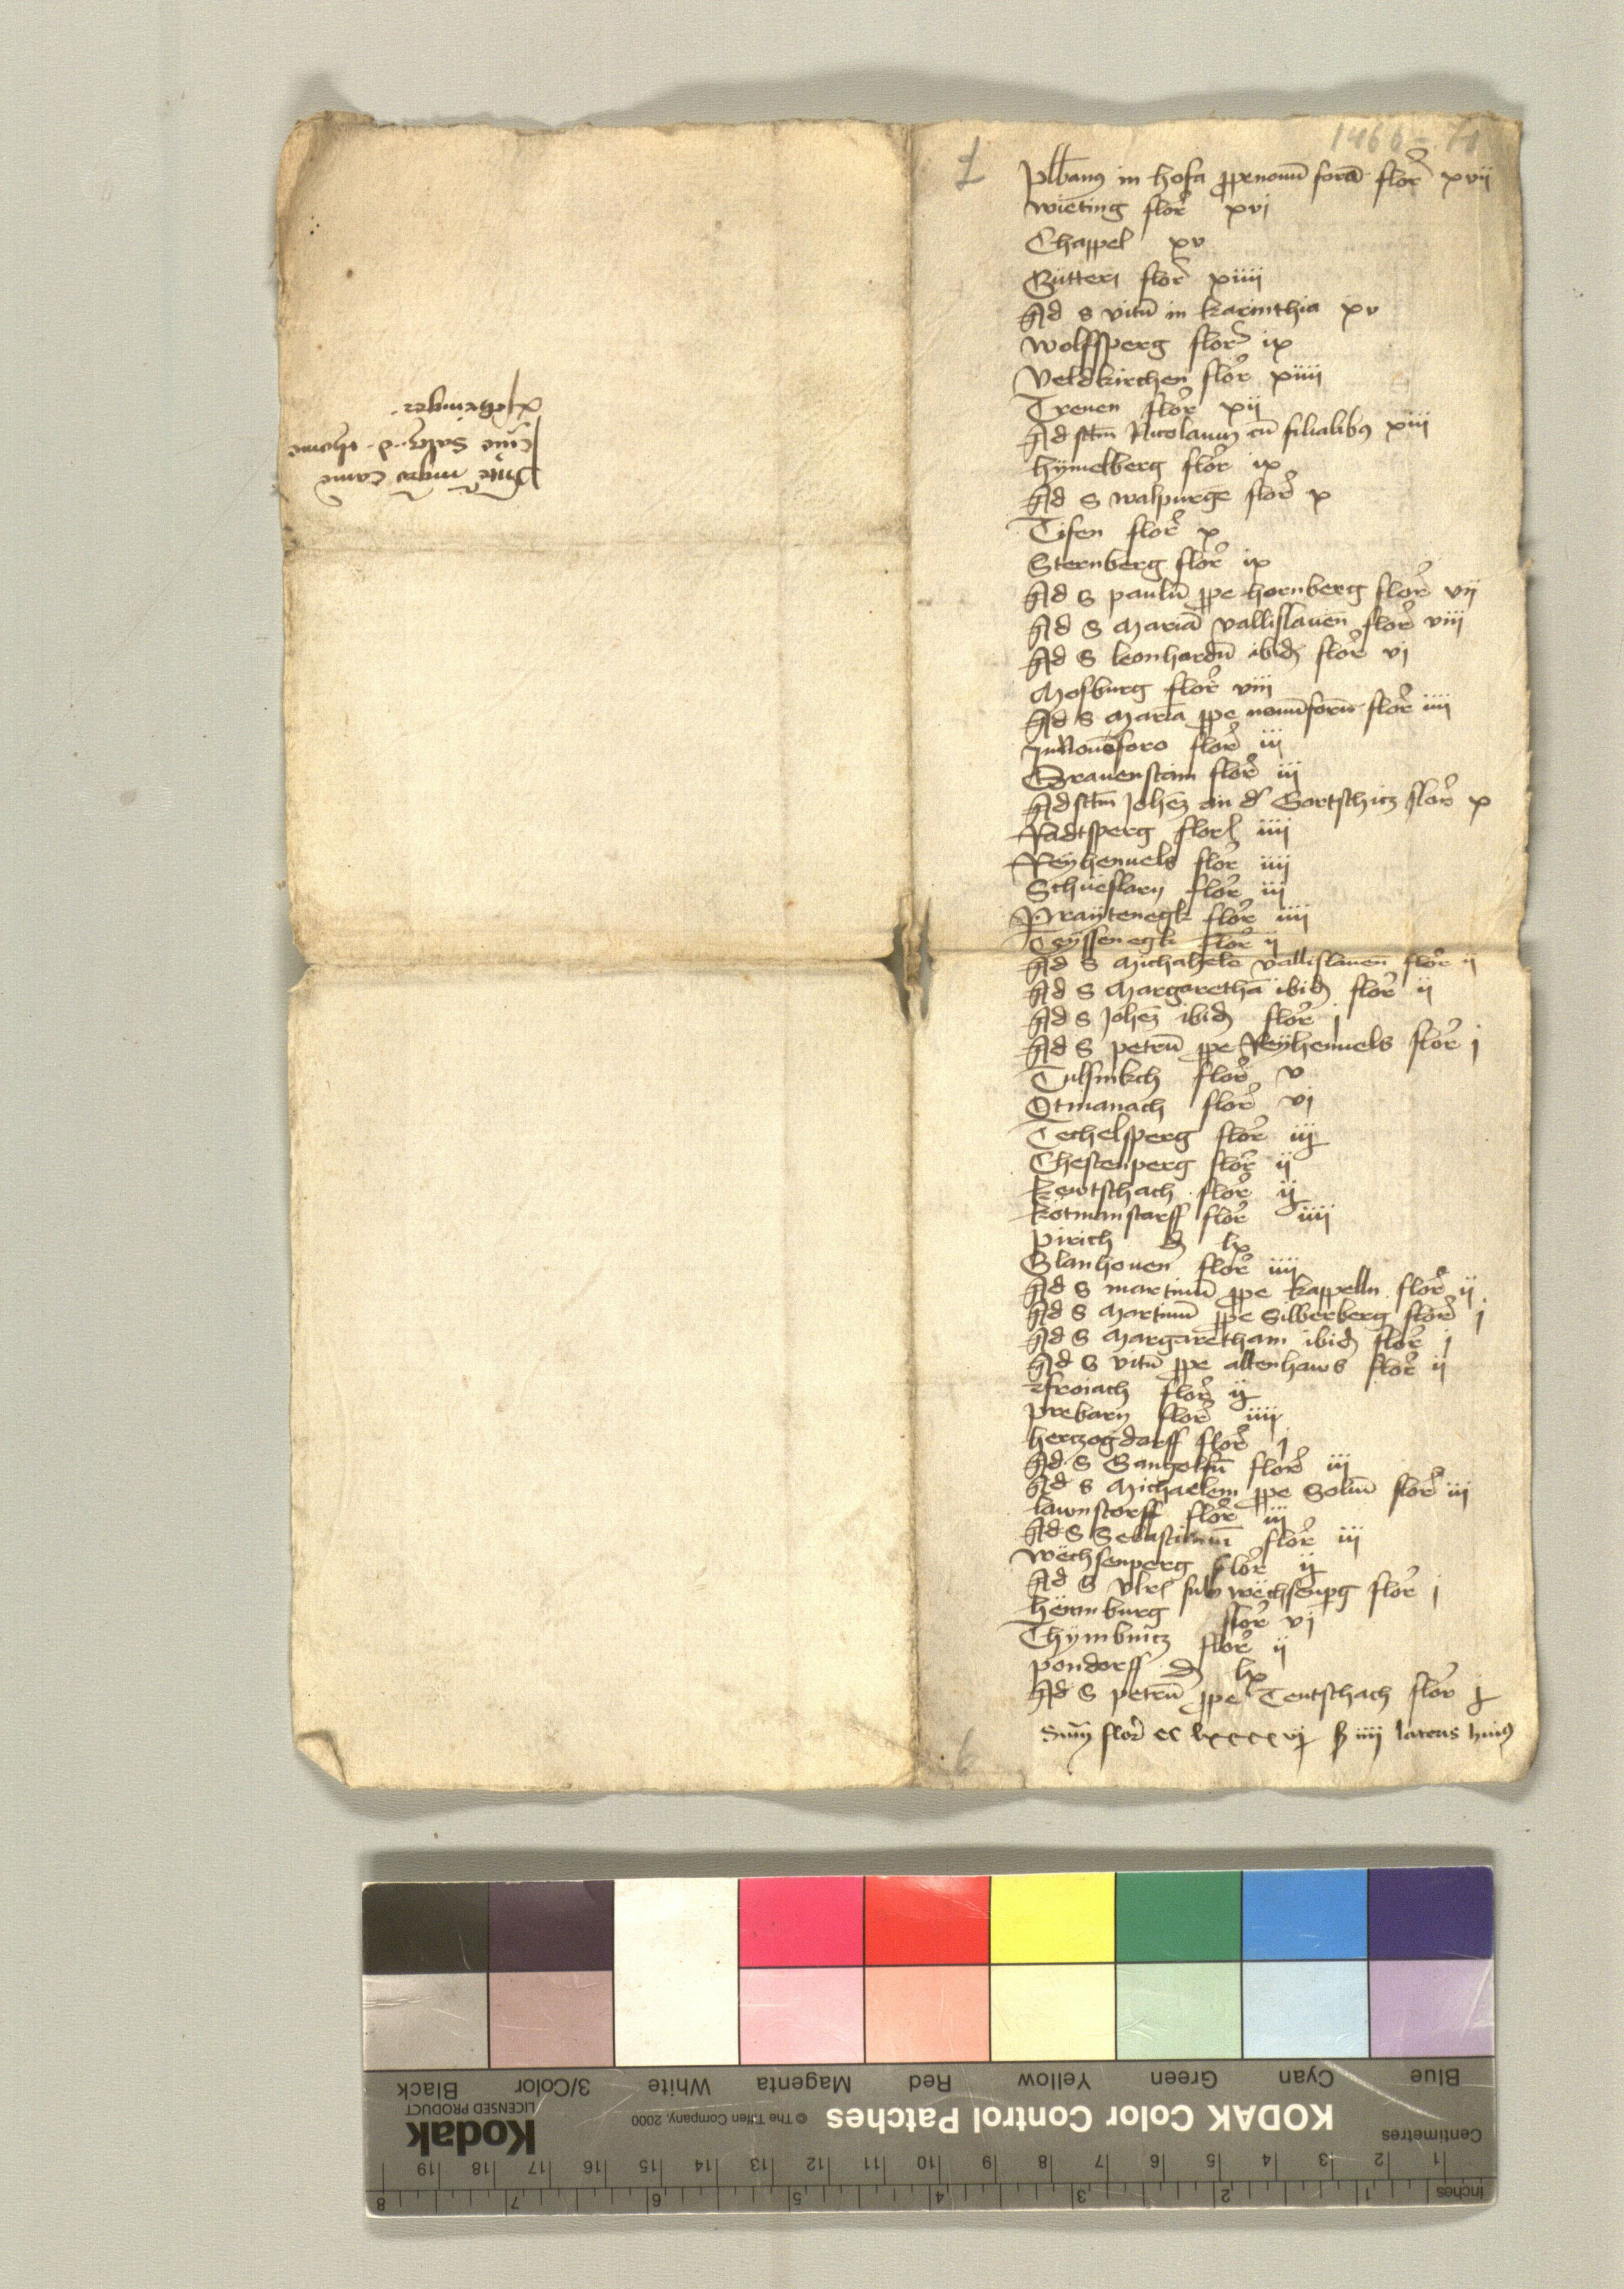 1466 – 71
1
plbanus in hofa prope nouu forũ flor xvij
wieting flor xvj
Chappel xv
Gutterj flor xiiij
Ad S vitũ in karinthia xv
wolfsperg flor ix
Veldkirchen flor xiiij
Treuen flor xij
Ad sctm Nicolaum cũ filialibus xiij
hÿmelberg flor ix
Ad S walpurgẽ flor x
Tifen flor x
Sternberg flor ix
Ad S paulũ prope hornberg flor vij
Ad S Mariã vallislauen flor viij
Ad S leonhardũ ibid flor vj
Mosburg flor viij
Ad S Mariã prope nouũforũ flor iiij
In Nouoforo flor iij
Grauenstain flor iij
Ad sctm Johẽm an d Gortschicz flor x
Radtsperg flor iiij
Reyhenuels flor iiij
Schieflarn flor iij
Praÿtenegk flor iiij
Teÿssenegk flor ij
Ad S Michahelẽ vallislauen flor ij
Ad S Margarethã ibid flor ij
Ad S Johẽm ibid flor j
Ad S petrũ prope Reÿhenuels flor j
Tulsnikch flor v
Otmanach flor vj
Techelsperg flor iij
Chestenperg flor ij
kewtschach flor ij
kötmanstarff flor iiij
pirich d lx
Glanhouen flor iiij
Ad S martinũ prope kappelln flor ij
Ad S Martinũ prope Silberberg flor j
Ad S Margaretham ibid flor j
Ad S vitũ prope altenhaws flor ij
flor ij
prebarn flor iiij
herczogdarff flor j
Ad S Gangolfũ flor iij
Ad S Michaelem prope Soliũ flor iij
lawnstorff flor iij
Ad S Sebastianũ flor iij
wëchsenperg flor ij
Ad S vlr sub wëchsenpg flor j
hëmburg flor vj
Thÿmbnicz flor ij
pondorff d lx
Ad S petrũ prope Teutschach flor j
Sum flor cc lxxxxvj ß iiij lateris huius